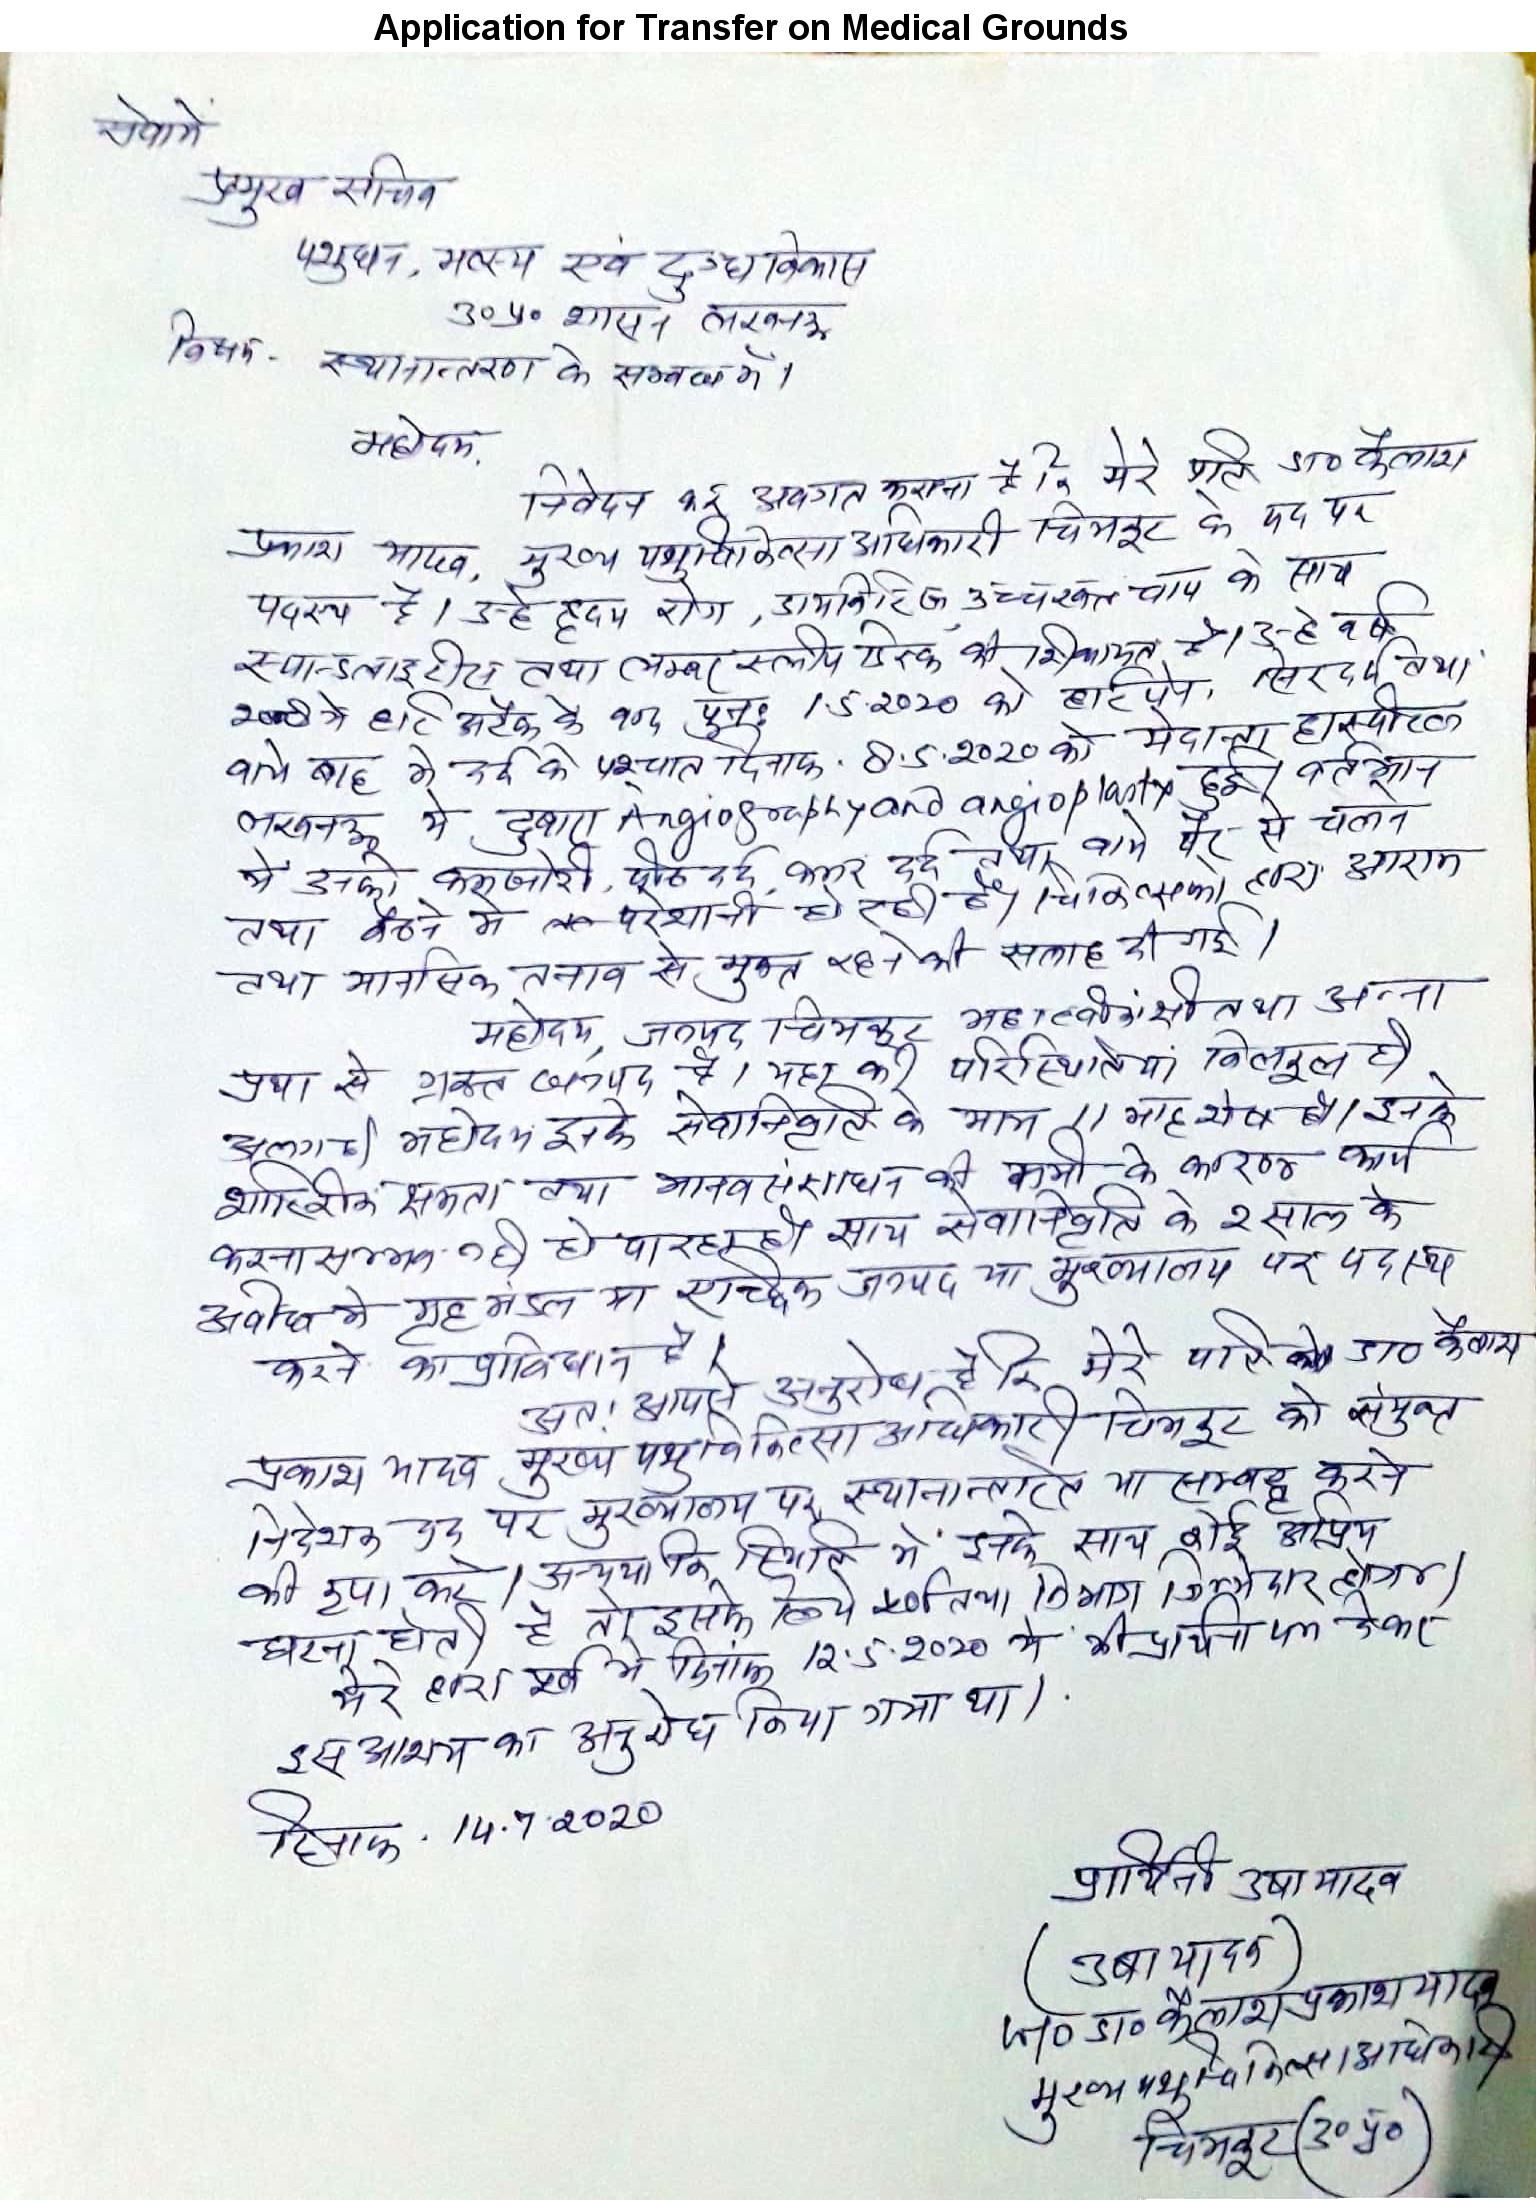 Application for Transfer on Medical Grounds
सेवामें
प्रमुख सचिव
पशुधन, मत्स्य एवं दुग्धविकास
उ०प्र० शासन लखनऊ
विषय- स्थानान्तरण के सम्बन्ध में।
महोदय,
निवेदन कर अवगत कराना है कि मेरे पति डा० कैलाश
प्रकाश यादव, मुख्य पशुचिकित्सा अधिकारी चित्रकूट के पद पर
पदस्थ है। उन्हे हृदय रोग, डायबिटिज, उच्चरक्त चाप के साथ
स्पान्डलाइटीस तथा लम्बर स्लीप डिस्क की शिकायत है। उन्हे वर्ष
में हार्ट अटैक के बाद पुनः 1.5.2020 को हार्ट पेन, सिर दर्द तथा
वाये बाह मे दर्द के पश्चात दिनांक. 8.5.2020 को मेदान्ता हास्पीटल
लखनऊ मे दुबारा Angiography and angioplasty हुई। वर्तमान
मे उनको कमजोरी, पीठ दर्द, कमर दर्द तथा वाये पैर से चलने
तथा बैठने मे परेशानी हो रही है। चिकित्सको द्वारा आराम
तथा मानसिक तनाव से मुक्त रहने की सलाह दी गई।
महोदय, जनपद चित्रकूट महात्वाकांक्षी तथा अन्ना
प्रथा से ग्रस्त जनपद है। यहा की परिस्थितियां बिलकुल ही
अलग है। महोदय इनके सेवानिवृति के मात्र 11 माह शेष है। इनके
शारिरीक क्षमता तथा मानव संसाधन की कमी के कारण कार्य
करना सम्भव नही हो पा रहा है। साथ सेवानिवृति के 2 साल के
अवधि मे गृह मंडल या एच्छिक जनपद या मुख्यालय पर पदस्थ
करने का प्राविधान है।
अतः आपसे अनुरोध है कि मेरे पति को डा० कैलाश
प्रकाश यादव मुख्य पशुचिकित्सा अधिकारी चित्रकूट को संयुक्त
निदेशक पद पर मुख्यालय पर स्थानान्तरित या सम्बद्ध करने
की कृपा करे। अन्यथा कि स्थिति मे इनके साथ कोई अप्रिय
घटना होती है तो इसके लिये विभाग जिम्मेदार होगा।
मेरे द्वारा पूर्व मे दिनांक 12.5.2020 मे भी प्रार्थना पत्र देकर
इस आशय का अनुरोध किया गया था।
दिनाक. 14.7.2020
प्रार्थिनी उषा यादव
(उषा यादव)
W/O डा० कैलाश प्रकाश यादव
मुख्य पशुचिकित्सा अधिकारी
चित्रकूट (उ० प्र०)